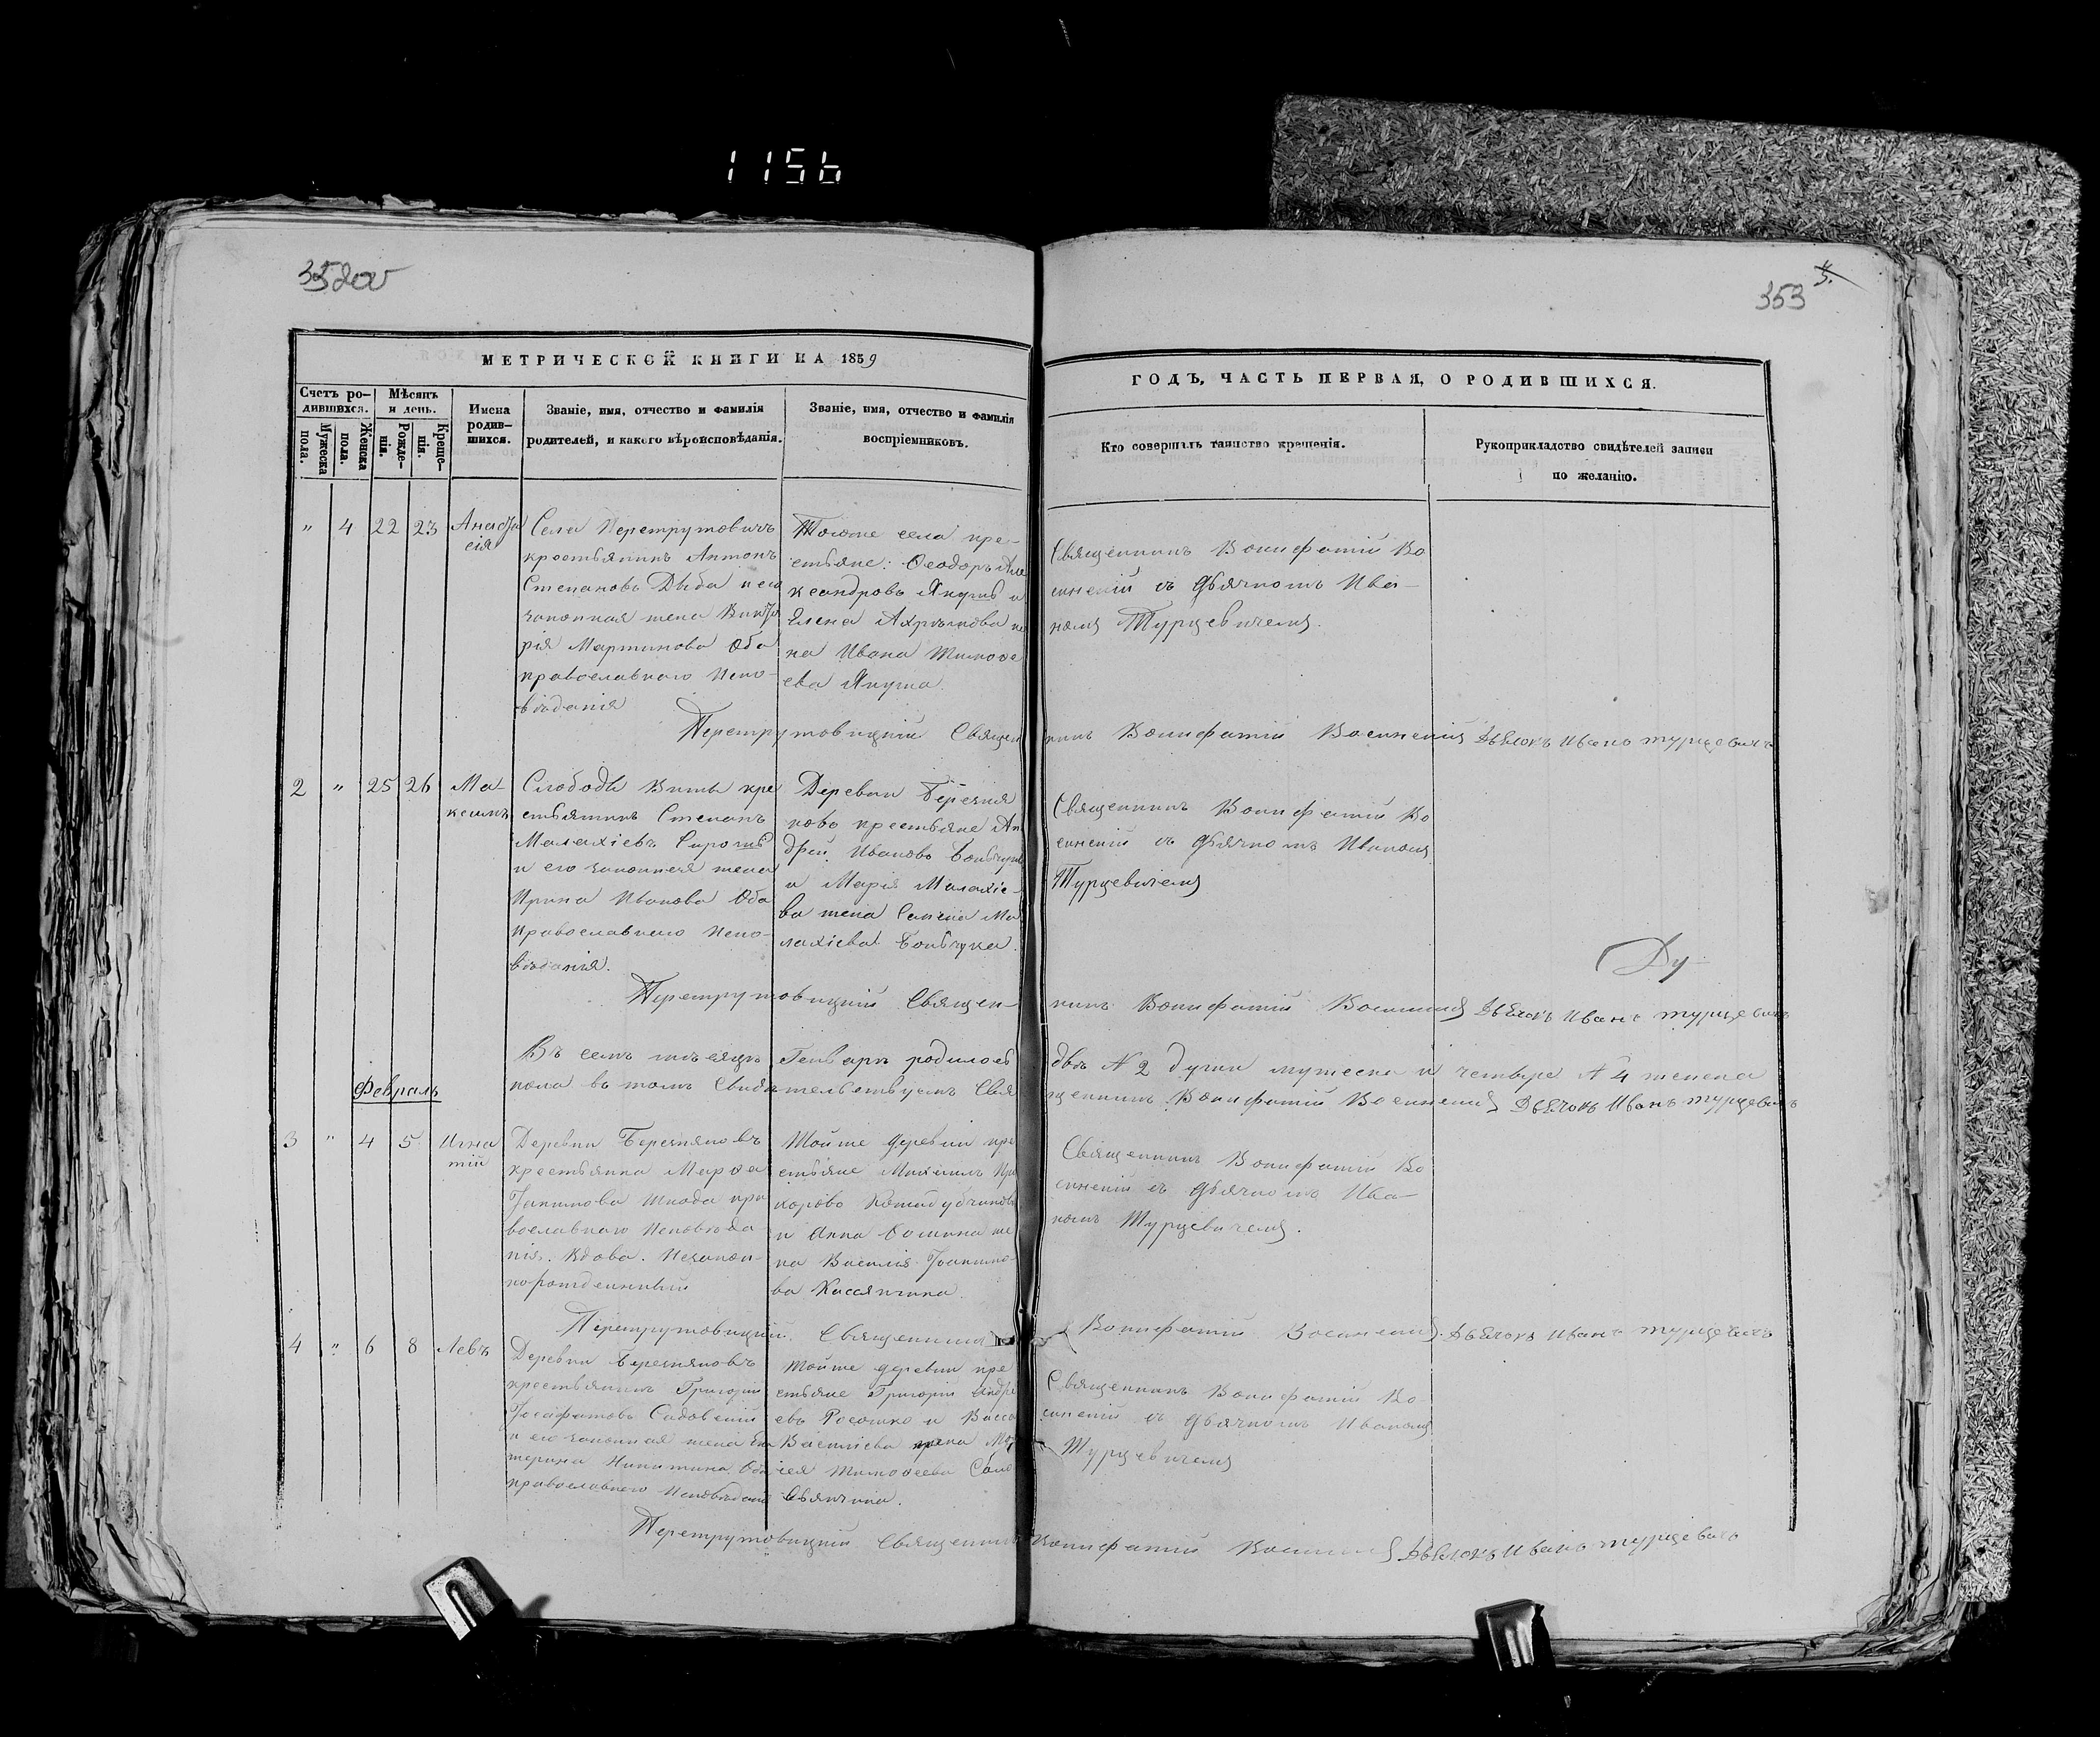 1156
352об
353
5.
МЕТРИЧЕСКОЙ КНИГИ НА 1859
ГОДЪ, ЧАСТЬ ПЕРВАЯ, О РОДИВШИХСЯ.
Счетъ ро-
дившихся.
Мужеска
пола.
Женска
пола.
Мѣсяцъ
и день.
Рожде-
нія.
Креще-
нія.
Имена
родив-
шихся.
Званіе, имя, отчество и фамилія
родителей, и какого вѣроисповѣданія.
Званіе, имя, отчество и фамилія
воспріемниковъ.
Кто совершалъ таинство крещенія.
Рукоприкладство свидѣтелей записи
по желанію.
" 4 22 23
Анаста
сія
Села Перетрутовичъ
крестьянинъ Антонъ
Степановъ Дыба и его
законная жена Викто
рія Мартинова Оба
православнаго Испо-
вѣданія
Тогоже села кре-
стьяне: Ѳеодоръ Але
ксандровъ Якушъ и
Елена же
на Ивана Тимоѳе
ева Якуша.
Священникъ Вонифатій Во
синскій съ дьячкомъ Ива-
номъ Турцевичемъ.
Перетрутовицкій Священникъ Вонифатій Восинскій Дьячокъ Иванъ Турцевичъ
2 " 25 26
Ма-
ксимъ
Слободы кре
стьянинъ Степанъ
Малахіевъ
и его законная жена
Ирина Иванова Оба
Православнаго Испо-
вѣданія.
Деревни Березня
ковъ крестьяне Ан
дрей Ивановъ
и Марія Малахіе-
ва жена Ма
лахіева
Священникъ Вонифатій Во
синскій съ дьячкомъ Иваномъ
Турцевичемъ
Ду-
Перетрутовицкій Священникъ Вонифатій Восинскій Дьячокъ Иванъ Турцевичъ
Въ семъ мѣсяцѣ Генварѣ родилось двѣ № 2 души мужеска и четыре № 4 женска
пола въ томъ Свидѣтельствуемъ Священникъ Вонифатій Восинскій Дьячокъ Иванъ Турцевичъ
Февраль
3 " 4 5
Игна
тій
Деревни Березняковъ
крестьянка Марѳа
Іоакимова Шкода пра
вославнаго Исповѣда
нія. Вдова. Незакон-
норожденный
Тойже деревни кре
стьяне Михаилъ
и Анна Ѳомина же
на Василія Іоакимо-
ва Касянчика.
Священникъ Вонифатій Во
синскій съ дьячкомъ Ива-
номъ Турцевичемъ.
Перетрутовицкій. Священникъ Вонифатій Восинскій. Дьячокъ Иванъ Турцевичъ
4 " 6 8 Левъ
Деревни Березняковъ
крестьянинъ Григорій
Іосафатовъ Садовскій
и его законная жена Ека
терина Никитина. Оба
православнаго Исповѣданія
Тойже деревни кре
стьяне Григорій Андре
евъ и Васса
Василіева жена Мо
Тимоѳеева
Священникъ Вонифатій Во-
синскій съ дьячкомъ Иваномъ
Турцевичемъ
Перетрутовицкій Священникъ Вонифатій Восинскій Дьячокъ Иванъ Турцевичъ